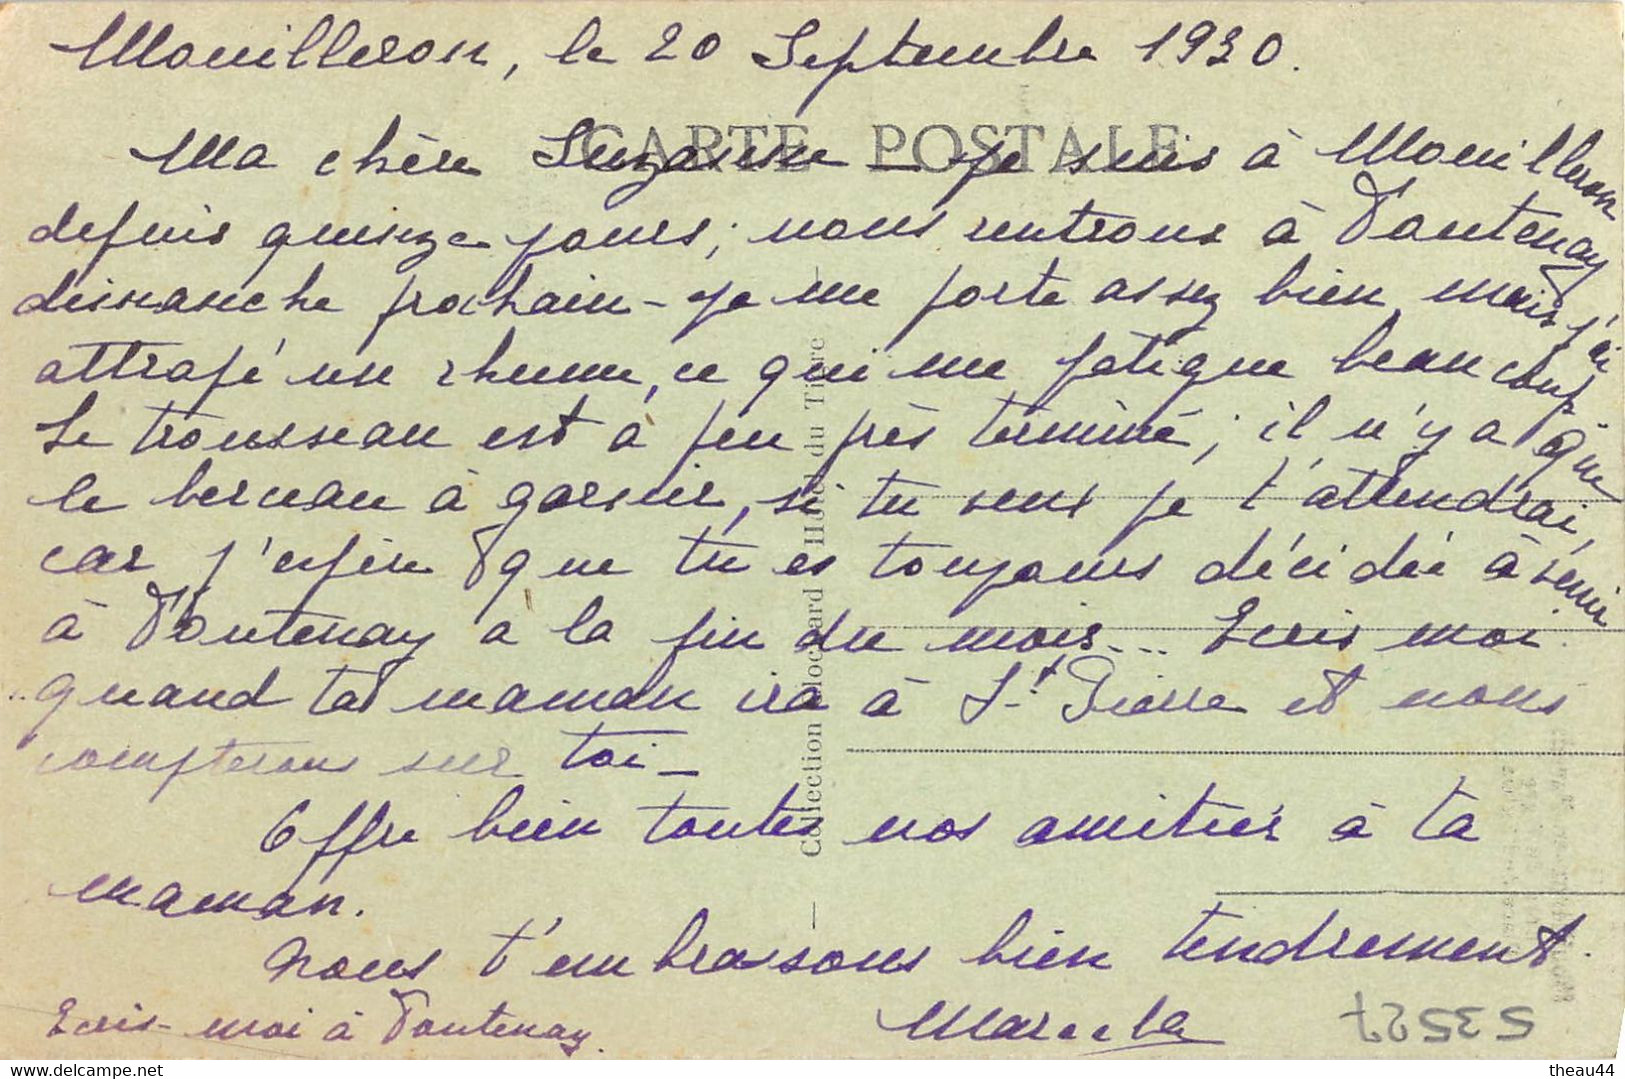 Mouilleron, le 20 Septembre 1930.
CARTE POSTALE
Ma chère Suzanne - je suis à Mouilleron
depuis quinze jours; nous rentrons à Fontenay
dimanche prochain - je me porte assez bien, mais j'ai
attrapé un rhume, ce qui me fatigue beaucoup.
Le trousseau est à peu près terminé; il n'y a que
le berceau à garnir, si tu veux je t'attendrai,
car j'espère que tu es toujours décidée à venir
à Fontenay a la fin du mois... Ecris moi
quand ta maman ira à St Pierre et nous
compterons sur toi -
Offre bien toutes nos amitiés à ta
maman.
Nous t'embrassons bien tendrement.
Ecris-moi à Fontenay.
Marcela
Collection du Tigre
53527
www.delcampe.net
theau44